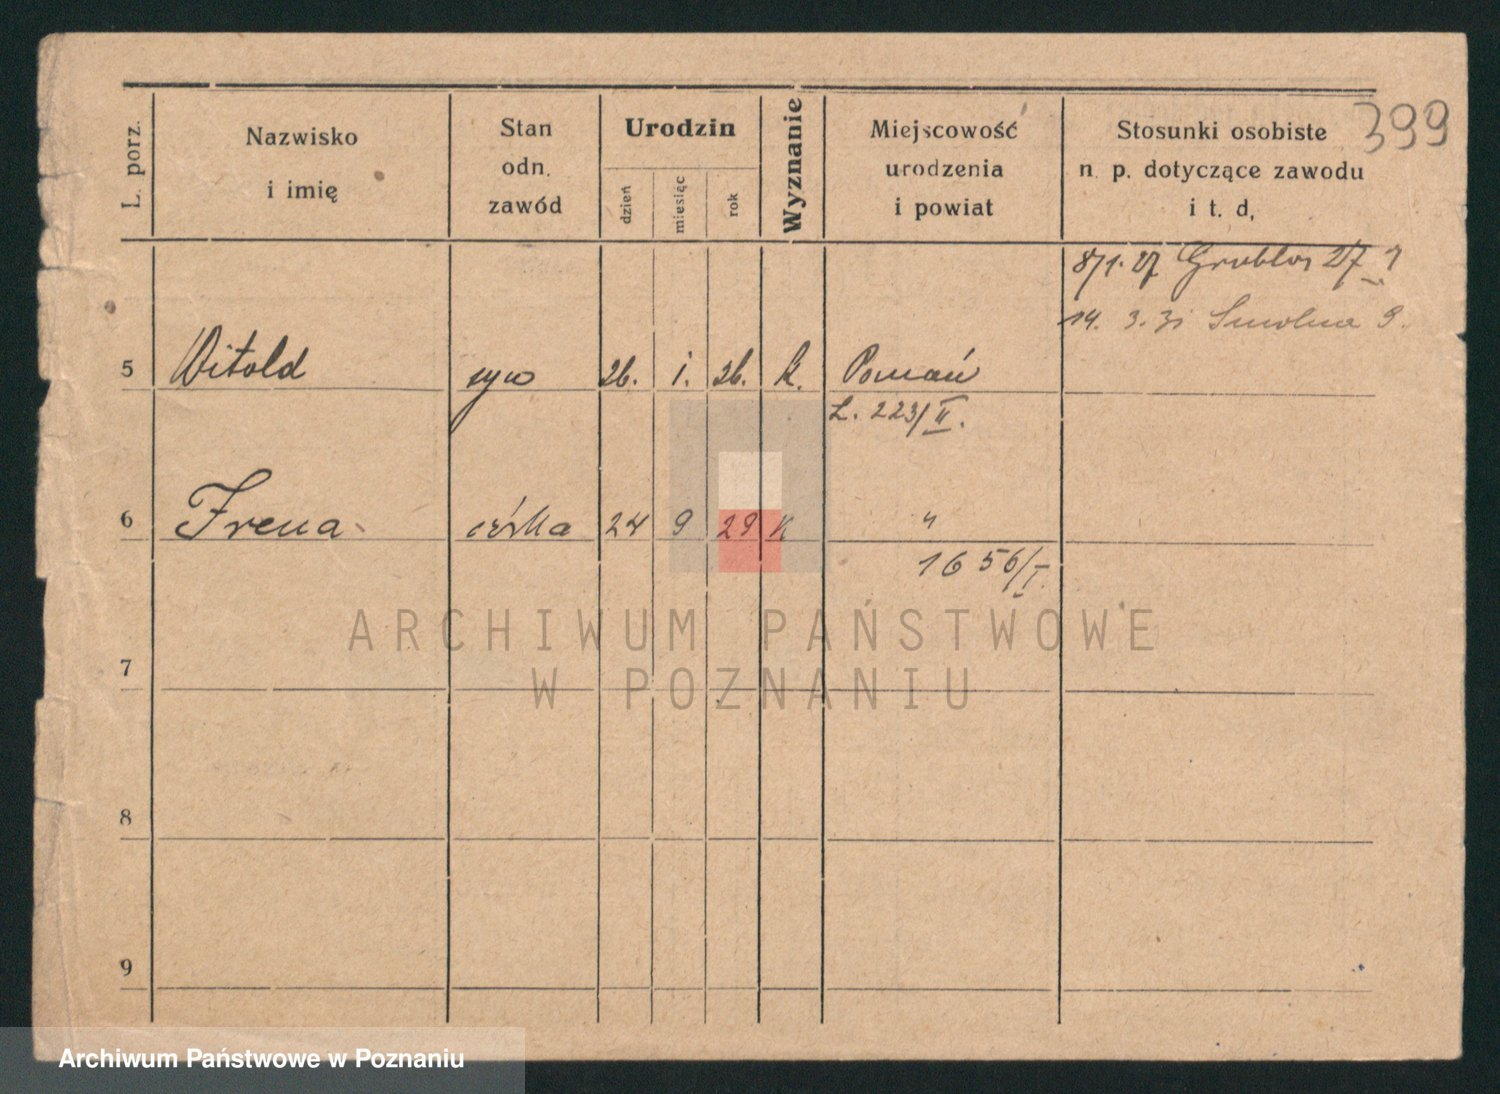 399
L. porz.
Nazwisko
i imię
Stan
odn.
zawód
Urodzin
dzień
miesiąc
rok
Wyznanie
Miejscowość
urodzenia
i powiat
Stosunki osobiste
n. p. dotyczące zawodu
i t. d,
8/1. 27
14. 3. 31 Smolna 9.
5 Witold syn 26. i. 26. k. Poznań
L. 223/II.
6 Irena córka 24 9 29 K "
1656/I.
7
8
9
ARCHIWUM PAŃSTWOWE
W POZNANIU
Archiwum Państwowe w Poznaniu